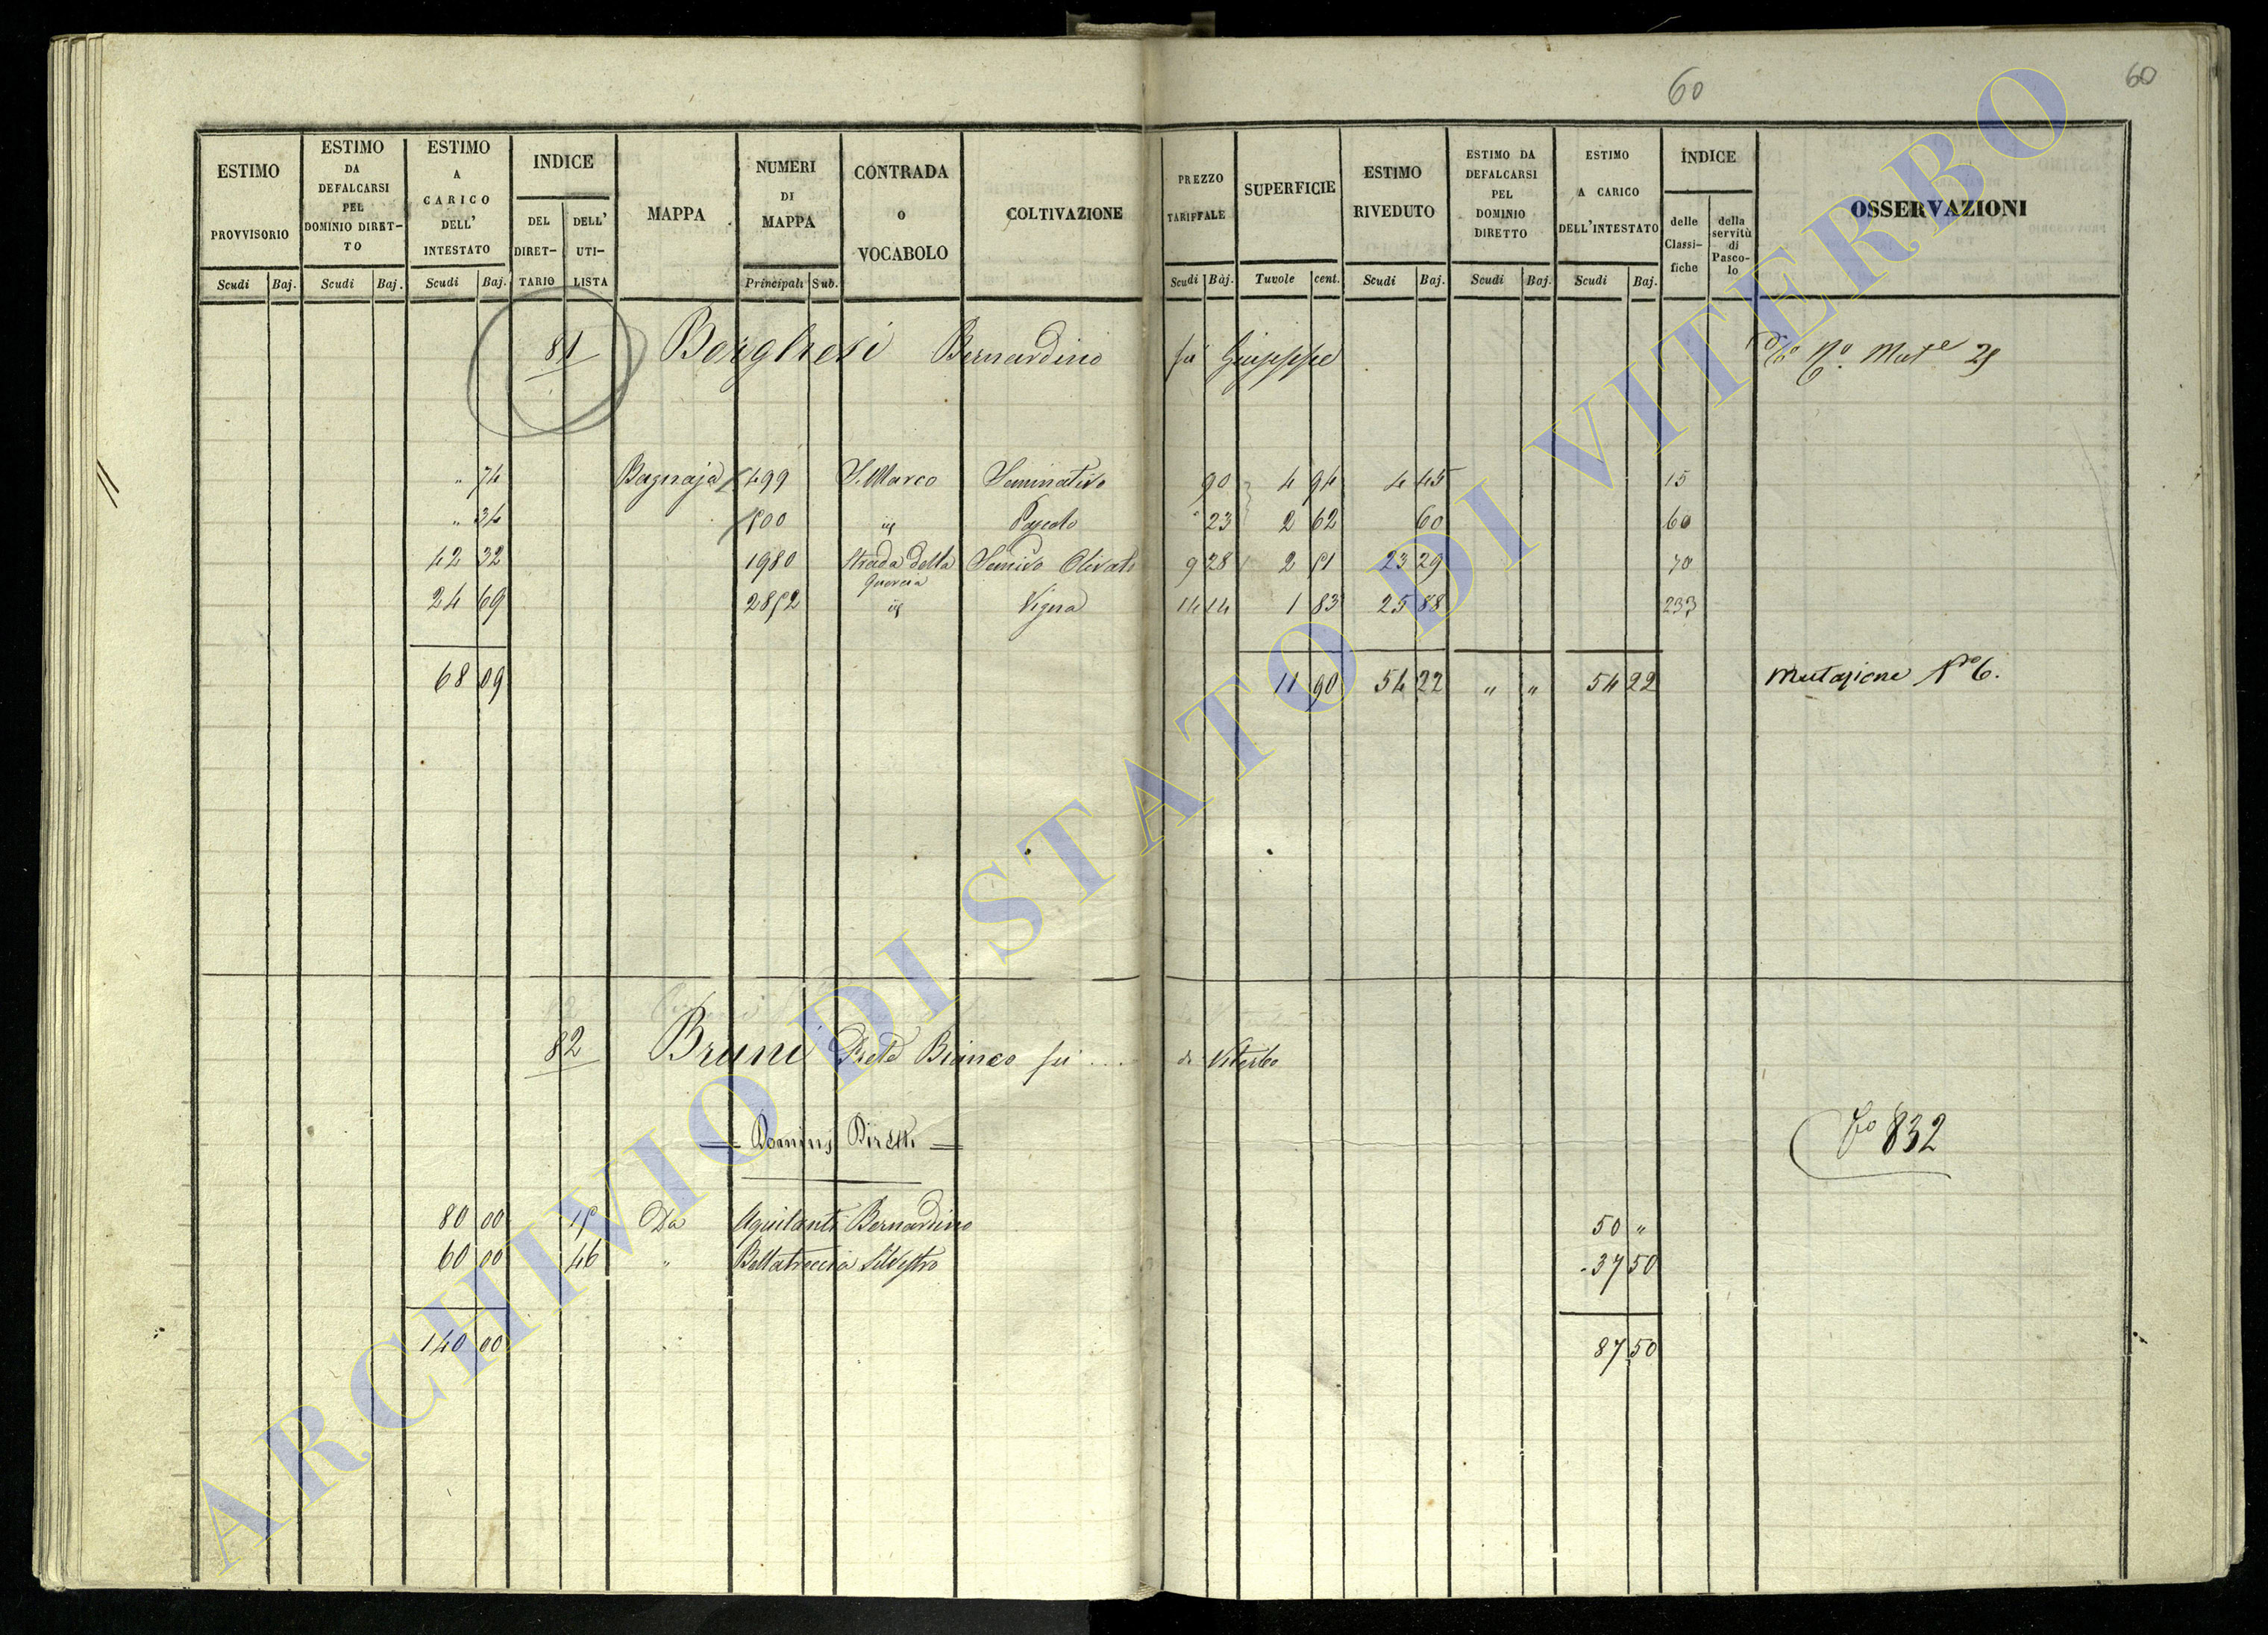 60
60
ESTIMO PROVVISORIO Scudi Baj.
ESTIMO DA DEFALCARSI PEL DOMINIO DIRETTO Scudi Baj.
ESTIMO A CARICO DELL' INTESTATO Scudi Baj.
INDICE DEL DIRETTARIO DELL' UTILISTA
MAPPA
NUMERI DI MAPPA Principali Sub.
CONTRADA O VOCABOLO
COLTIVAZIONE
PREZZO TARIFFALE Scudi Baj.
SUPERFICIE Tavole cent.
ESTIMO RIVEDUTO Scudi Baj.
ESTIMO DA DEFALCARSI PEL DOMINIO DIRETTO Scudi Baj.
ESTIMO A CARICO DELL'INTESTATO Scudi Baj.
INDICE delle Classifiche della servitù di Pascolo
OSSERVAZIONI
81 Borghesi Bernardino fu Giuseppe
" 74 Bagnaja 499 S. Marco Seminativo 90 4 94 4 45 15
" 34 500 Pascolo " 23 2 62 60 60
42 32 1980 Strada della Quercia Semivo Olivato 9 28 2 51 23 29 70
24 69 2852 Vigna 14 14 1 83 25 88 233
68 09 11 90 54 22 " " 54 22 Mutazione No 6.
82 Bruni Prete Bianco fu .... di Viterbo
Dominj Diretti
Fo 832
80 00 15 Da Aquilanti Bernardino 50 "
60 00 46 " Bellatreccia Silvestro 37 50
140 00 87 50
ARCHIVIO DI STATO DI VITERBO